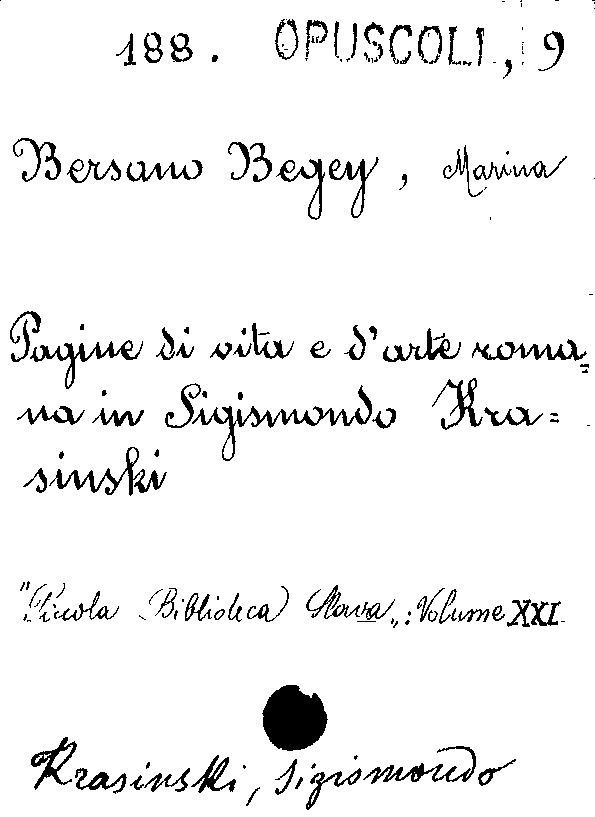 188. OPUSCOLI, 9
Bersano Begey, Marina
Pagine di vita e d'arte roma=
na in Sigismondo Kra=
sinski
"Piccola Biblioteca Slava„: Volume XXI
Krasinski, Sigismondo